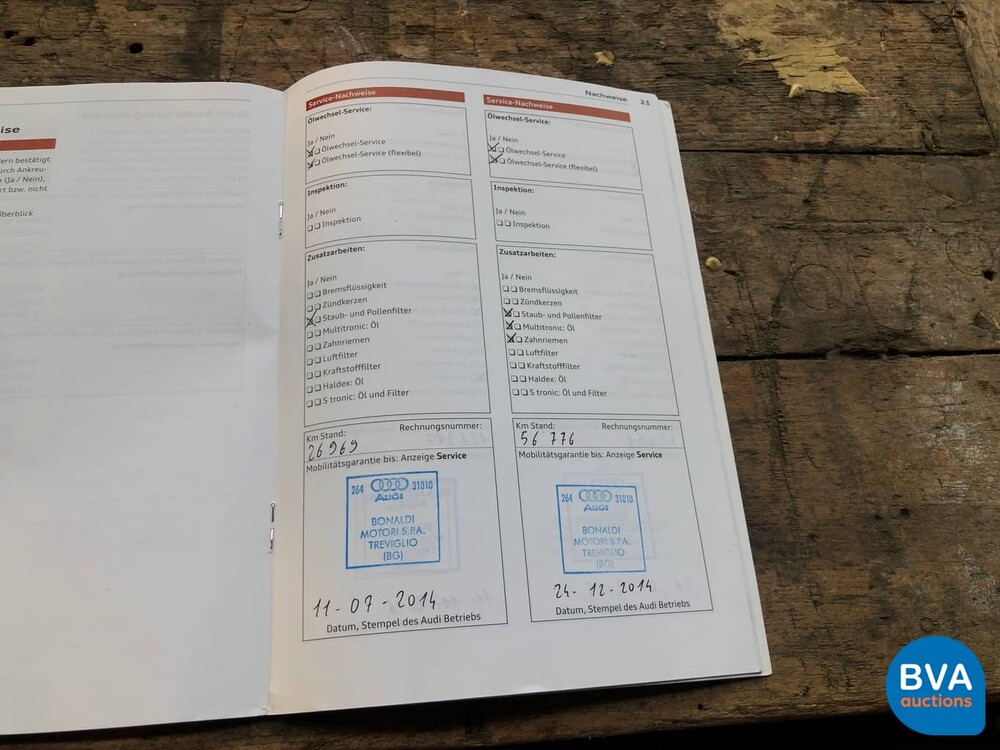 ise
dern bestätigt
urch Ankreu-
n (Ja / Nein),
rt bzw. nicht
berblick
Nachweise 21
Service-Nachweise
Ölwechsel-Service:
Ja / Nein
Ölwechsel-Service
Ölwechsel-Service (flexibel)
Inspektion:
Ja / Nein
Inspektion
Zusatzarbeiten:
Ja / Nein
Bremsflüssigkeit
Zündkerzen
Staub- und Pollenfilter
Multitronic: Öl
Zahnriemen
Luftfilter
Kraftstofffilter
Haldex: Öl
S tronic: Öl und Filter
Km Stand: Rechnungsnummer:
26 969
Mobilitätsgarantie bis: Anzeige Service
264 31010
Audi
BONALDI
MOTORI S.P.A.
TREVIGLIO
(BG)
11-07-2014
Datum, Stempel des Audi Betriebs
Service-Nachweise
Ölwechsel-Service:
Ja / Nein
Ölwechsel-Service
Ölwechsel-Service (flexibel)
Inspektion:
Ja / Nein
Inspektion
Zusatzarbeiten:
Ja / Nein
Bremsflüssigkeit
Zündkerzen
Staub- und Pollenfilter
Multitronic: Öl
Zahnriemen
Luftfilter
Kraftstofffilter
Haldex: Öl
S tronic: Öl und Filter
Km Stand: Rechnungsnummer:
56 776
Mobilitätsgarantie bis: Anzeige Service
264 31010
Audi
BONALDI
MOTORI S.P.A.
TREVIGLIO
(BG)
24-12-2014
Datum, Stempel des Audi Betriebs
BVA
auctions